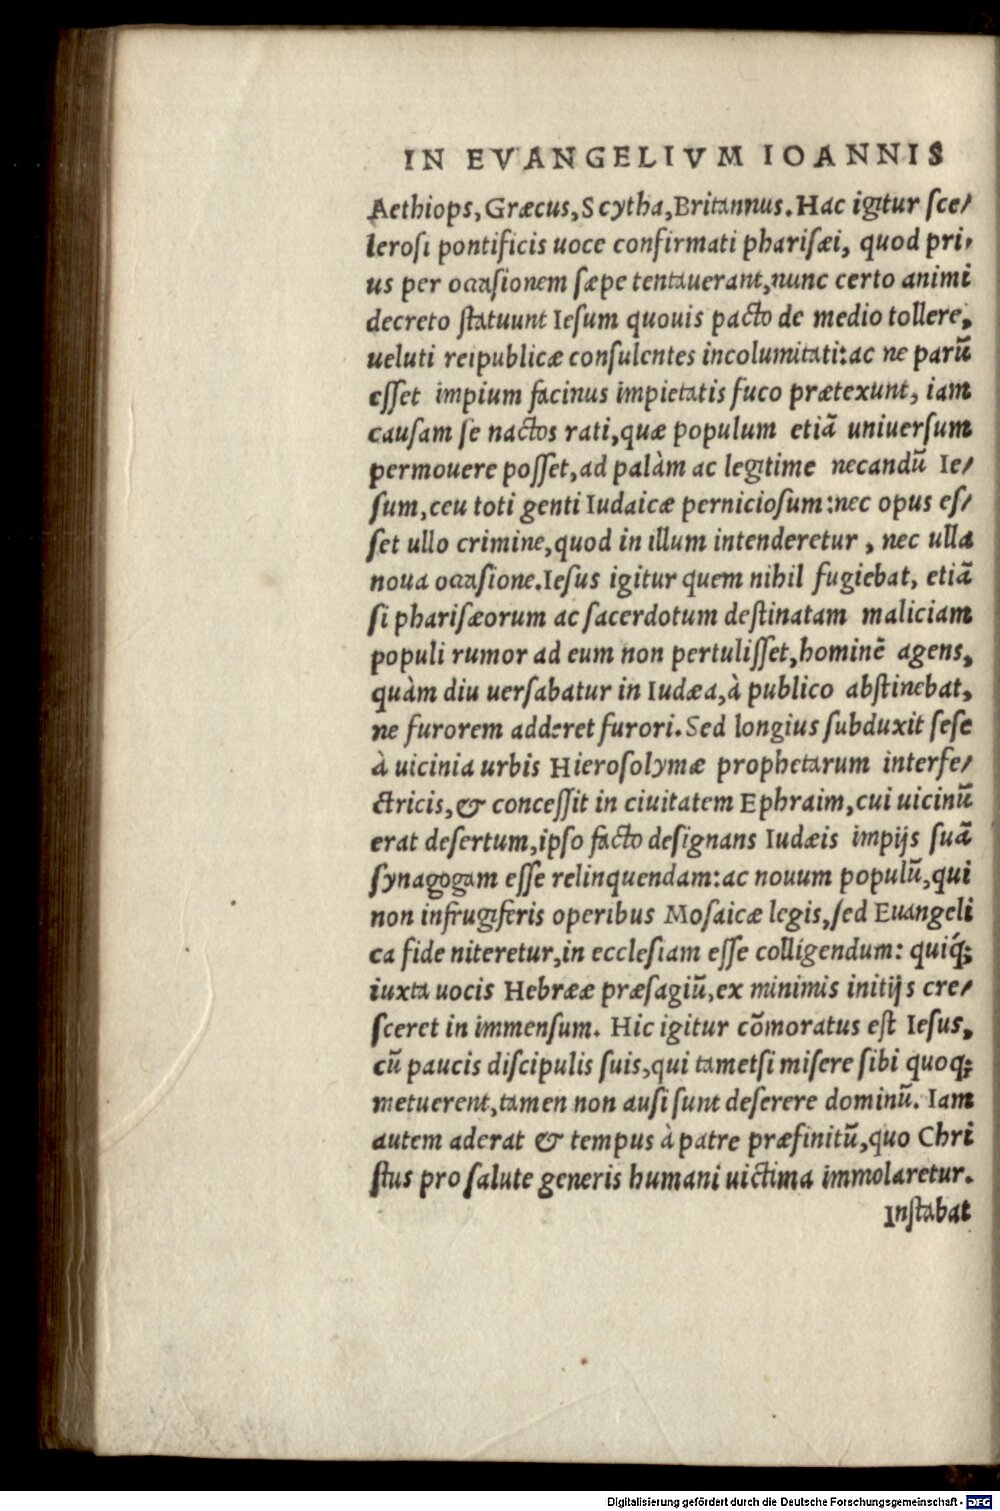 IN EVANGELIVM IOANNIS
Aethiops, Græcus, Scytha, Britannus. Hac igitur ſce/
leroſi pontificis uoce confirmati phariſæi, quod pri,
us per occaſionem ſæpe tentauerant, nunc certo animi
decreto ſtatuunt Ieſum quouis pacto de medio tollere,
ueluti reipublicæ conſulentes incolumitati: ac ne parū
eſſet impium facinus impietatis fuco prætexunt, iam
cauſam ſe nactos rati, quæ populum etiā uniuerſum
permouere poſſet, ad palàm ac legitime necandū Ie/
ſum, ceu toti genti Iudaicæ pernicioſum: nec opus eſ/
ſet ullo crimine, quod in illum intenderetur, nec ulla
noua occaſione. Ieſus igitur quem nihil fugiebat, etiā
ſi phariſæorum ac ſacerdotum deſtinatam maliciam
populi rumor ad eum non pertuliſſet, hominē agens,
quàm diu uerſabatur in Iudæa, à publico abſtinebat,
ne furorem adderet furori. Sed longius ſubduxit ſeſe
à uicinia urbis Hieroſolymæ prophetarum interfe/
ctricis, & conceſſit in ciuitatem Ephraim, cui uicinū
erat deſertum, ipſo facto deſignans Iudæis impijs ſuā
ſynagogam eſſe relinquendam: ac nouum populū, qui
non infrugiferis operibus Moſaicæ legis, ſed Euangeli
ca fide niteretur, in eccleſiam eſſe colligendum: quiq́;
iuxta uocis Hebrææ præſagiū, ex minimis initijs cre/
ſceret in immenſum. Hic igitur cōmoratus eſt Ieſus,
cū paucis diſcipulis ſuis, qui tametſi miſere ſibi quoq;
metuerent, tamen non auſi ſunt deſerere dominū. Iam
autem aderat & tempus à patre præfinitū, quo Chri
ſtus pro ſalute generis humani uictima immolaretur.
Inſtabat
Digitalisierung gefördert durch die Deutsche Forschungsgemeinschaft - DFG